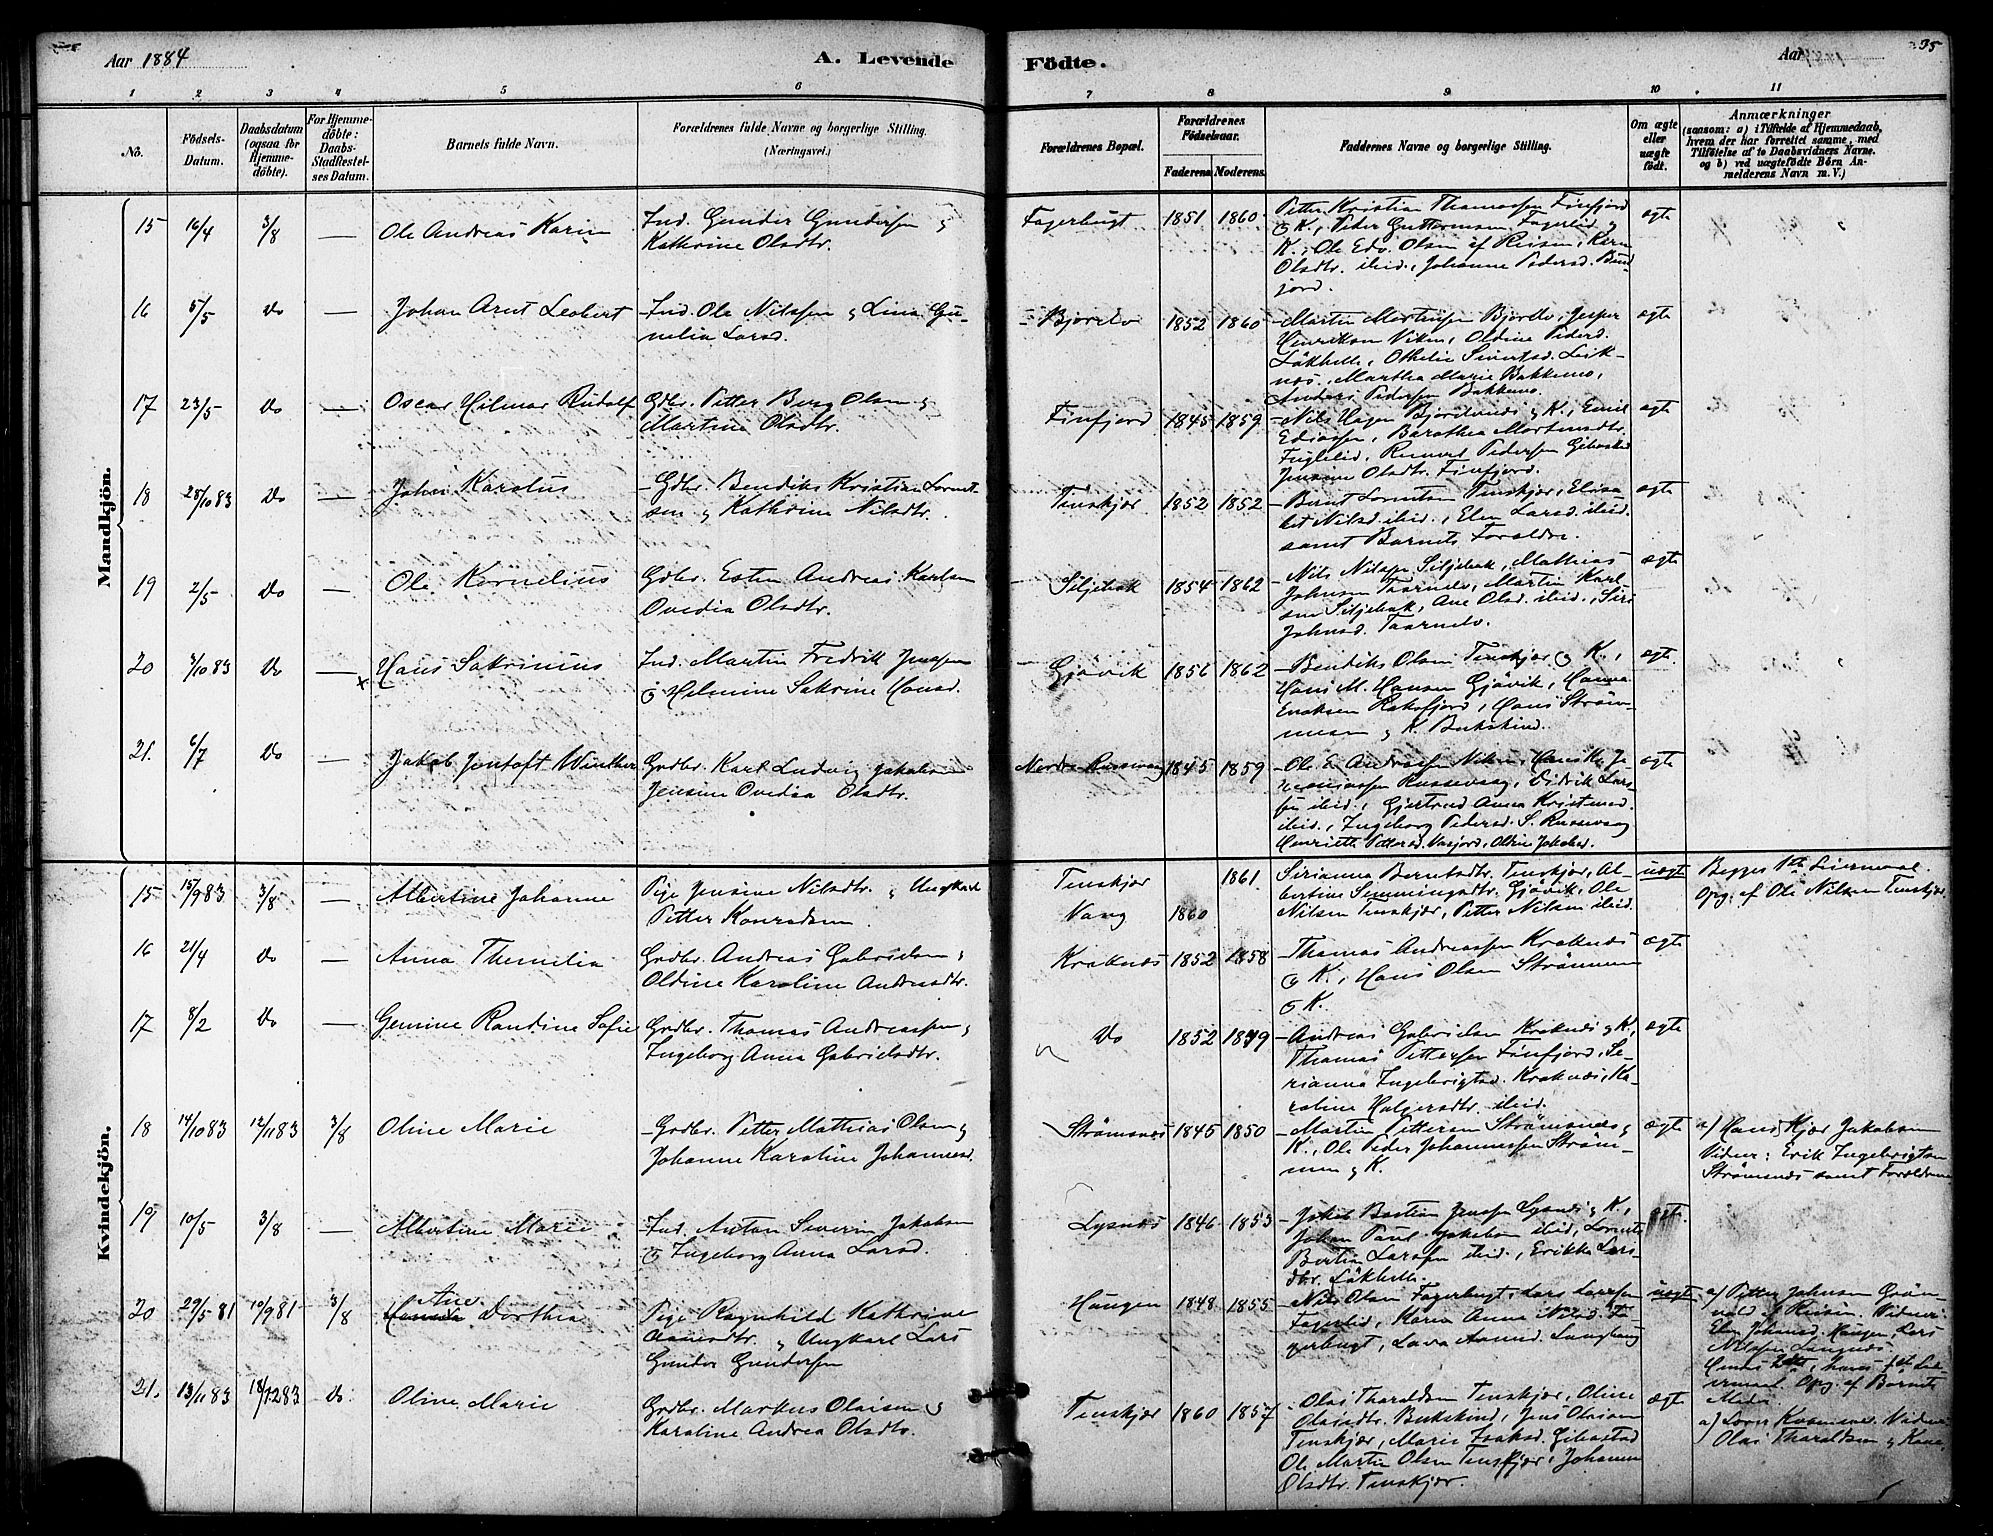 Aar 1884
A. Levende
Födte.
Aar
35
1 2 3 4 5 6 7 8 9 10 11
No.
Födsels-
Datum.
Daabsdatum
(ogsaa for
Hjemme-
döbte).
For Hjemme-
döbte:
Daabs-
Stadfæstel-
ses Datum.
Barnets fulde Navn.
Forældrenes fulde Navne og borgerlige Stilling.
(Næringsvei.)
Forældrenes Bopæl.
Forældrenes
Födselsaar.
Faderens. Moderens.
Faddernes Navne og borgerlige Stilling.
Om ægte
eller
uægte
födt.
Anmærkninger
(saasom: a) i Tilfælde af Hjemmedaab,
hvem der har forrettet samme, med
Tilföielse af to Daabsvidners Navne.
og b) ved uægtefödte Börn An-
melderens Navn m. V.)
Mandkjön.
15 16/4 3/8 — Ole Andreas Karin
Ind. Gunder Gundersen &
Kathrine Olsdtr.
Fagerbugt 1851 1860
Petter Kristian Thomassen Finfjord
& K., Peder Guttormsen Fagerlid &
K., Ole Edv. Olsen af Reisen, Karen
Olsdtr. ibid., Johanne Pedersd.
ægte
16 5/5 Do — Johan Arnt Leobert
Ind. Ole Nilssen & Lina Gu-
nelia Larsd.
Bjorelv 1852 1860
Martin Mortensen Bjorelv, Jesper
Henriksen Viken, Oldine Pedersd.
Låkhelle, Othelie Sivertsd. Leik-
nes, Martha Marie Bakkemo,
Anders Pedersen Bakkemo.
ægte
17 23/5 Do — Oscar Hilmar Rudolf
Gdbr. Petter Berg Olsen &
Martine Olsdtr.
Finfjord 1845 1859
Nils Hagen Bjorelvnes & K., Emil
Ediassen, Barothea Mortensdtr.
Fuglelid, Pedersen Gibostad
Jensine Olsdtr. Finfjord.
ægte
18 28/10 83 Do — John Karolus
Gdbr. Bendiks Kristian Lornt-
sen & Kathrine Nilsdtr.
Tenskjær 1852 1852
Bernt Lorntsen Tenskjær, Elisa-
bet Nilsd. ibid., Elen Larsd. ibid.
samt Barnets Forældre.
ægte
19 2/5 Do — Ole Kornelius
Gdbr. Esten Andreas Karlsen
Ovedia Olsdtr.
Siljebak 1854 1862
Nils Nilssen Siljebak, Mathias
Johnsen Taarnelv, Martin Karl-
sen Siljebak, Ane Olsd. ibid., Siri
Johnsd. Taarnelv.
ægte
20 3/10 83 Do — Hans Sakrinius
Ind. Martin Fredrik Jenssen
& Helmine Sakrine Hansd.
Gjövik 1856 1862
Bendiks Olsen Tenskjær & K.,
Hans M. Hansen Gjövik, Hanna
Enoksen Roksfjord, Hans Ström-
mesen & K. Bukskind.
ægte
21. 6/7 Do — Jakob Jentoft Winther
Grdbr. Karl Ludvig Jakobsen
Jensine Ovedia Olsdtr.
Nordre Russevaag 1845 1859
Ole E. Andreassen Viken, Hans K. Je-
remiassen Russevaag, Didrik Lars-
sen ibid., Gjertrud Anna Kristensd.
ibid., Ingeborg Pedersd. S. Russevaag
Henriette Pettersd. Vasjord, Oline Jakobsd.
ægte
Kvindekjön.
15 15/9 83 3/8 — Albertine Johanne
Pige Jensine Nilsdtr. & Ungkarl
Petter Konradsen.
Tenskjær 1861.
Vang 1860
Sirianna Berntsdtr. Tenskjær, Al-
bertine Simmingsdtr. Gjövik, Ole
Nilsen Tenskjær, Petter Nilsen ibid.
uægte
Begges 1ste Leiermaal.
Opg. af Ole Nilsen Tenskjær
16 21/4 Do — Anna Themilia
Grdbr. Andreas Gabrielsen &
Oldine Karoline Andreasdtr.
Kraknes 1852 1858
Thomas Andreassen Kraknes
& K., Hans Olsen Strömmen
& K.
ægte
17 8/2 Do — Gemine Randine Sofie
Grdbr. Thomas Andreassen &
Ingeborg Anna Gabrielsdtr.
Do 1852 1849
Andreas Gabrielsen Kraknes & K.,
Thomas Pettersen Finfjord, Se-
rianna Ingebrigtsd. Kraknes, Ka-
roline Holgersdtr. ibid.
ægte
18 14/10 83 12/11 83 3/8 Oline Marie
Grdbr. Petter Mathias Olsen &
Johanne Karoline Johannesd.
Strömsnes 1845 1850
Martin Pettersen Strömsnes &
K., Ole Peder Johannessen Ström-
men & K.
ægte
a) Hans Kjær Jakobsen
Vidner: Erik Ingebrigtsen
Strömsnes samt Forældrene
19 10/5 3/8 — Albertine Marie
Ind. Anton Severin Jakobsen
& Ingeborg Anna Larsd.
Lysnes 1846 1853
Jakob Bastian Jenssen Lysnes & K.,
Johan Paul Jakobsen ibid., Lornts
Bertin Larssen ibid., Erikke Lars-
dtr. Låkhelle.
ægte.
20 29/5 81 10/9 81 3/8 Ane Dorthea
Pige Ragnhild Kathrine
& Ungkarl Lars
Gunder Gundersen
Haugen 1848 1855
Nils Olsen Fagerbugt, Lars Larssen
Fagerlid, Karen Anna Nilsd. Fa-
gerbugt, Lava Langhaug
uægte
a) Petter Johnsen Grön-
vold & Vidner:
Elen Johansd. Haugen, Lars
Nilssen Langnes.
Hendes 2det, hans 1ste Lei-
ermaal. Opg. af Barnets
Moder.
21. 13/11 83 18/12 83 Do. Oline Marie
Grdbr. Markus Olaisen &
Karoline Andrea Olsdtr.
Tenskjær 1860 1857
Olai Tharaldsen Tenskjær, Oline
Olaisdtr. Bukskind, Jens Olaisen
Tenskjær, Marie Isaksd. Gibostad
Ole Martin Olsen Tenskjær, Johanna
Olsdtr. Tenskjær.
ægte
a) Vidner
Olai Tharaldsen & Kone